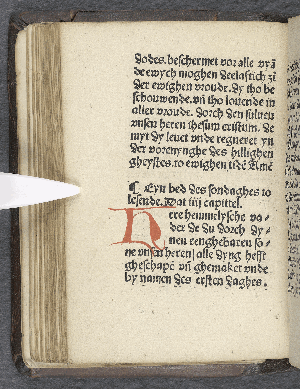 dodes. beschermet vor alle vyā
de ewych moghen deelaftich zi
der ewighen vroude. dy tho be
schouwende. vn̄ tho louende in
aller vroude. dorch den sulven
vnsen heren ihesum cristum. de
myt dy leuet vnde regneret yn
der vorenynghe des hillighen
gheystes. to ewighen tidē Amē
¶ Eyn bed des sondaghes to
lesende. Dat iiij capittel.
Here hemmelysche va-
der de du dorch dy-
nen eenghebaren so-
ne vnsen heren / alle dyng hefft
gheschapē vn̄ ghemaket vnde
by namen des ersten daghes.